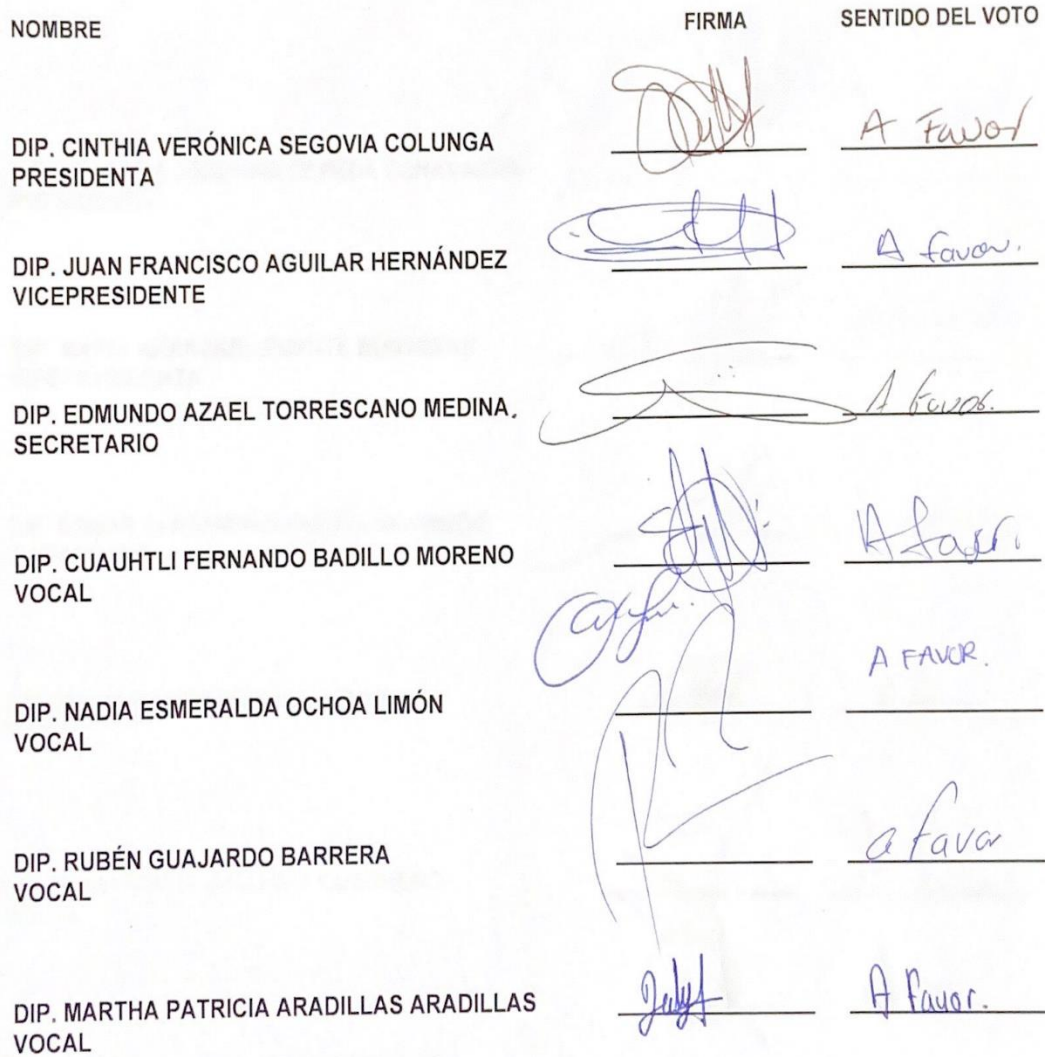 NOMBRE FIRMA SENTIDO DEL VOTO
A Favor
DIP. CINTHIA VERÓNICA SEGOVIA COLUNGA
PRESIDENTA
A favor.
DIP. JUAN FRANCISCO AGUILAR HERNÁNDEZ
VICEPRESIDENTE
A favor.
DIP. EDMUNDO AZAEL TORRESCANO MEDINA.
SECRETARIO
A favor.
DIP. CUAUHTLI FERNANDO BADILLO MORENO
VOCAL
A FAVOR.
DIP. NADIA ESMERALDA OCHOA LIMÓN
VOCAL
a favor
DIP. RUBÉN GUAJARDO BARRERA
VOCAL
A Favor.
DIP. MARTHA PATRICIA ARADILLAS ARADILLAS
VOCAL